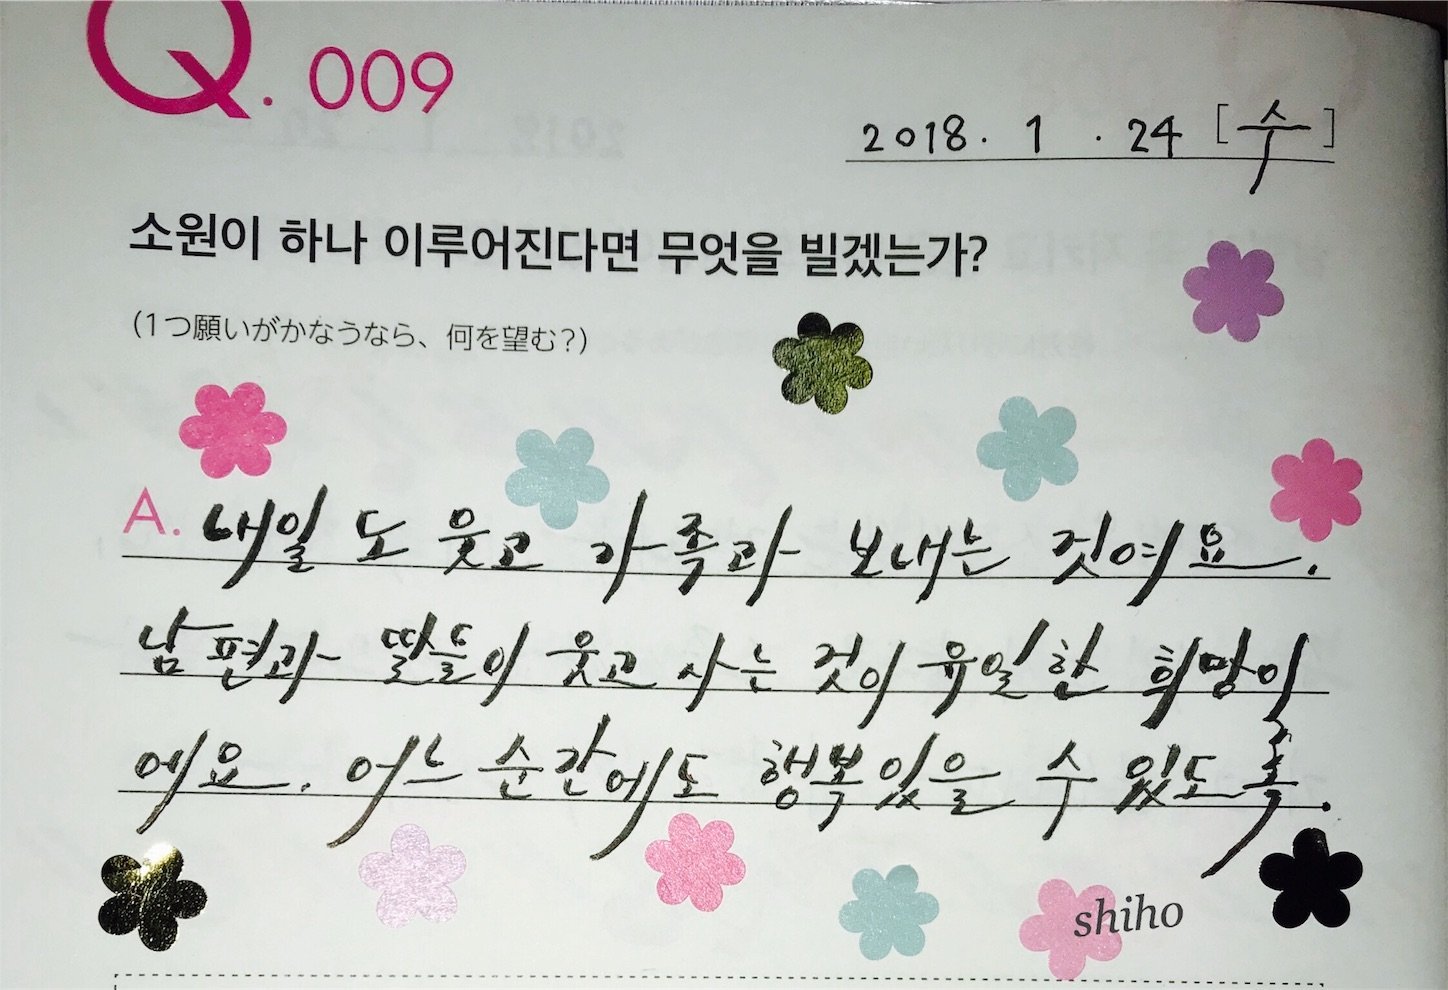 Q. 009
2018. 1 . 24 [수]
소원이 하나 이루어진다면 무엇을 빌겠는가?
(1つ願いがかなうなら、何を望む?)
A. 내일도 웃고 가족과 보내는 것여요.
남편과 딸들이 웃고 사는 것이 유일한 희망이
에요. 어느 순간에도 행복있을 수 있도록.
shiho